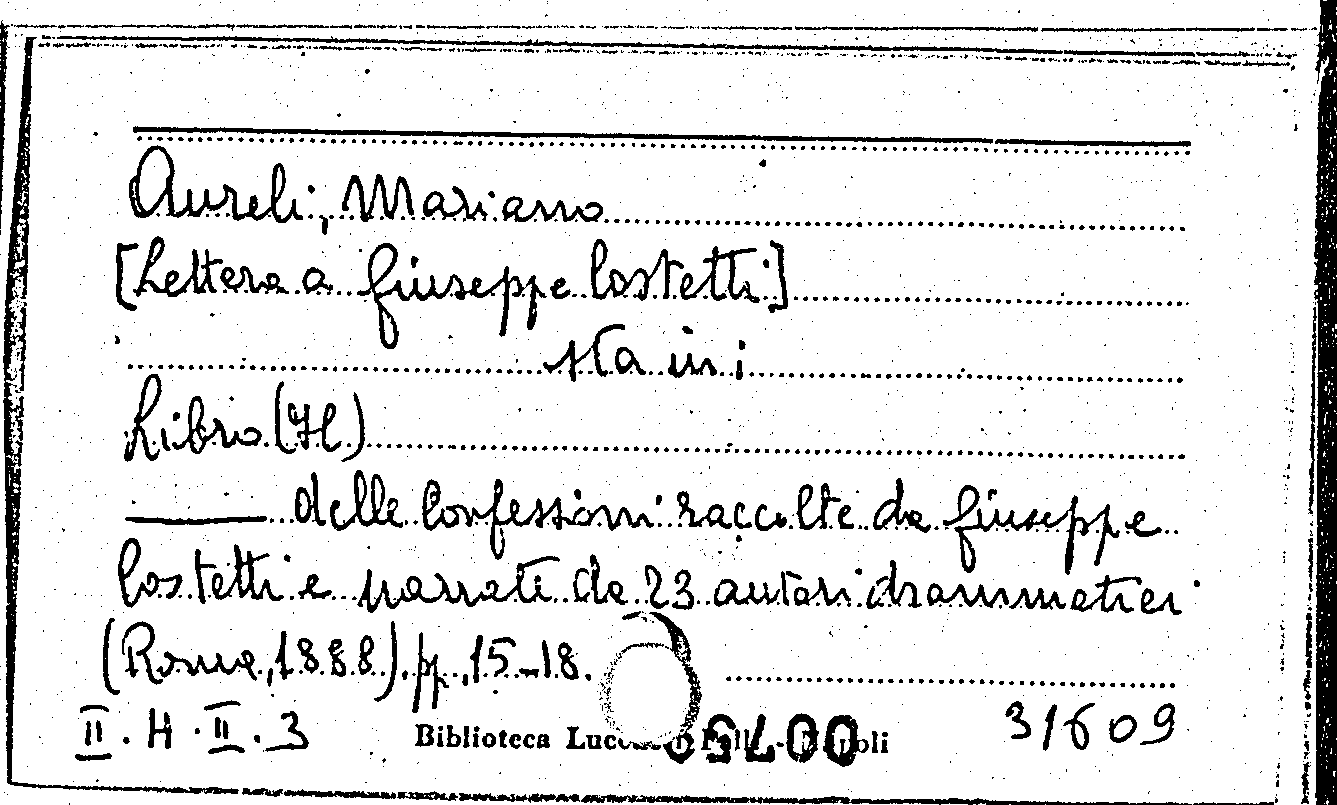 Aureli, Mariano
[Lettera a Giuseppe Costetti]
sta in:
Libro (Il)
——— delle Confessioni raccolte da Giuseppe
Costetti e narrate da 23 autori drammatici
(Roma, 1888). pp. 15-18.
II. H. II. 3
Biblioteca
31609